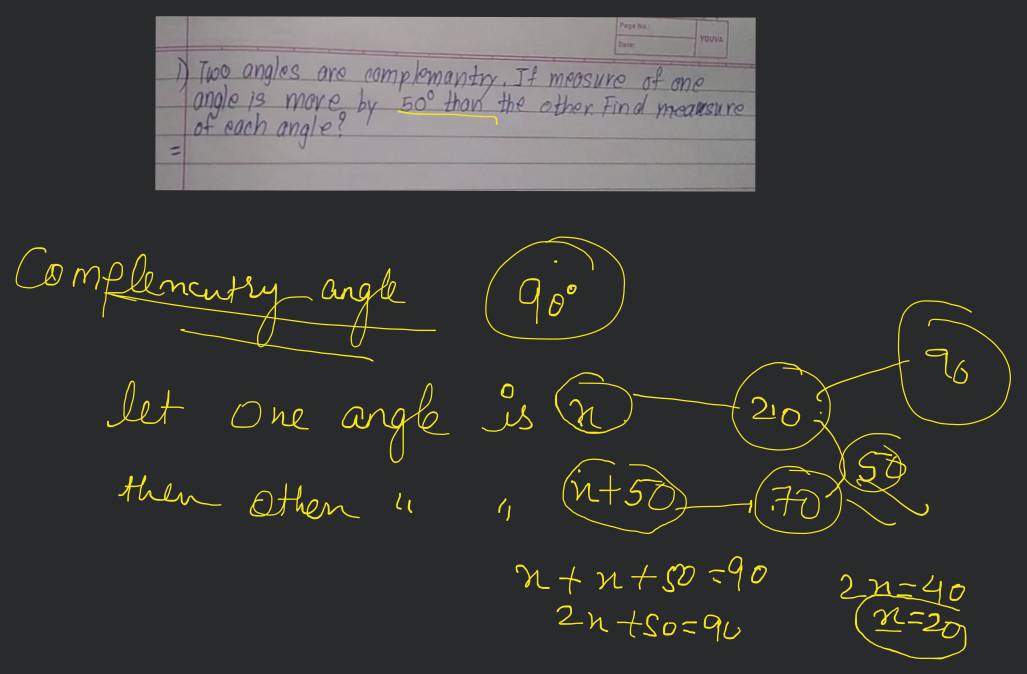 Page No.:
Date:
YOUVA
1) Two angles are complemantry. If measure of one
angle is more by 50° than the other. Find measure
of each angle?
=
Complemantry angle 90°
90
let one angle is x 20
50
then other " " x+50 70
x + x + 50 = 90
2x = 40
2x + 50 = 90
x = 20